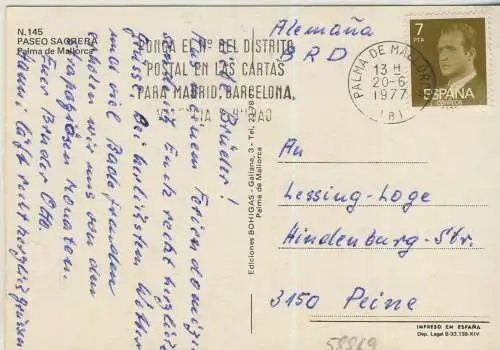 N.145
PASEO SAGRERA
Palma de Mallorca
PONGA EL Nº DEL DISTRITO
POSTAL EN LAS CARTAS
PARA MADRID, BARCELONA,
PALMA DE MALLORCA
13 H
20-6
1977
(B)
7
PTA
ESPAÑA
CORREOS
Alemaña
BRD
Brüder!
Aus meinem Ferien domizil
Euch recht herzlich
Grüsse. Bei herlichstem Wetter
und viel Badefreuden
erholen wir uns von den
strapaziösen Monaten.
Euer Bruder Otto.
Hanni läßt recht herzlich grüssen
Ediciones BOHIGAS - Gallana, 3 - Tel.
Palma de Mallorca
An
Lessing-Loge
Hindenburg-Str.
3150 Peine
IMPRESO EN ESPAÑA
Dep. Legal B-33.138-XIV
58869